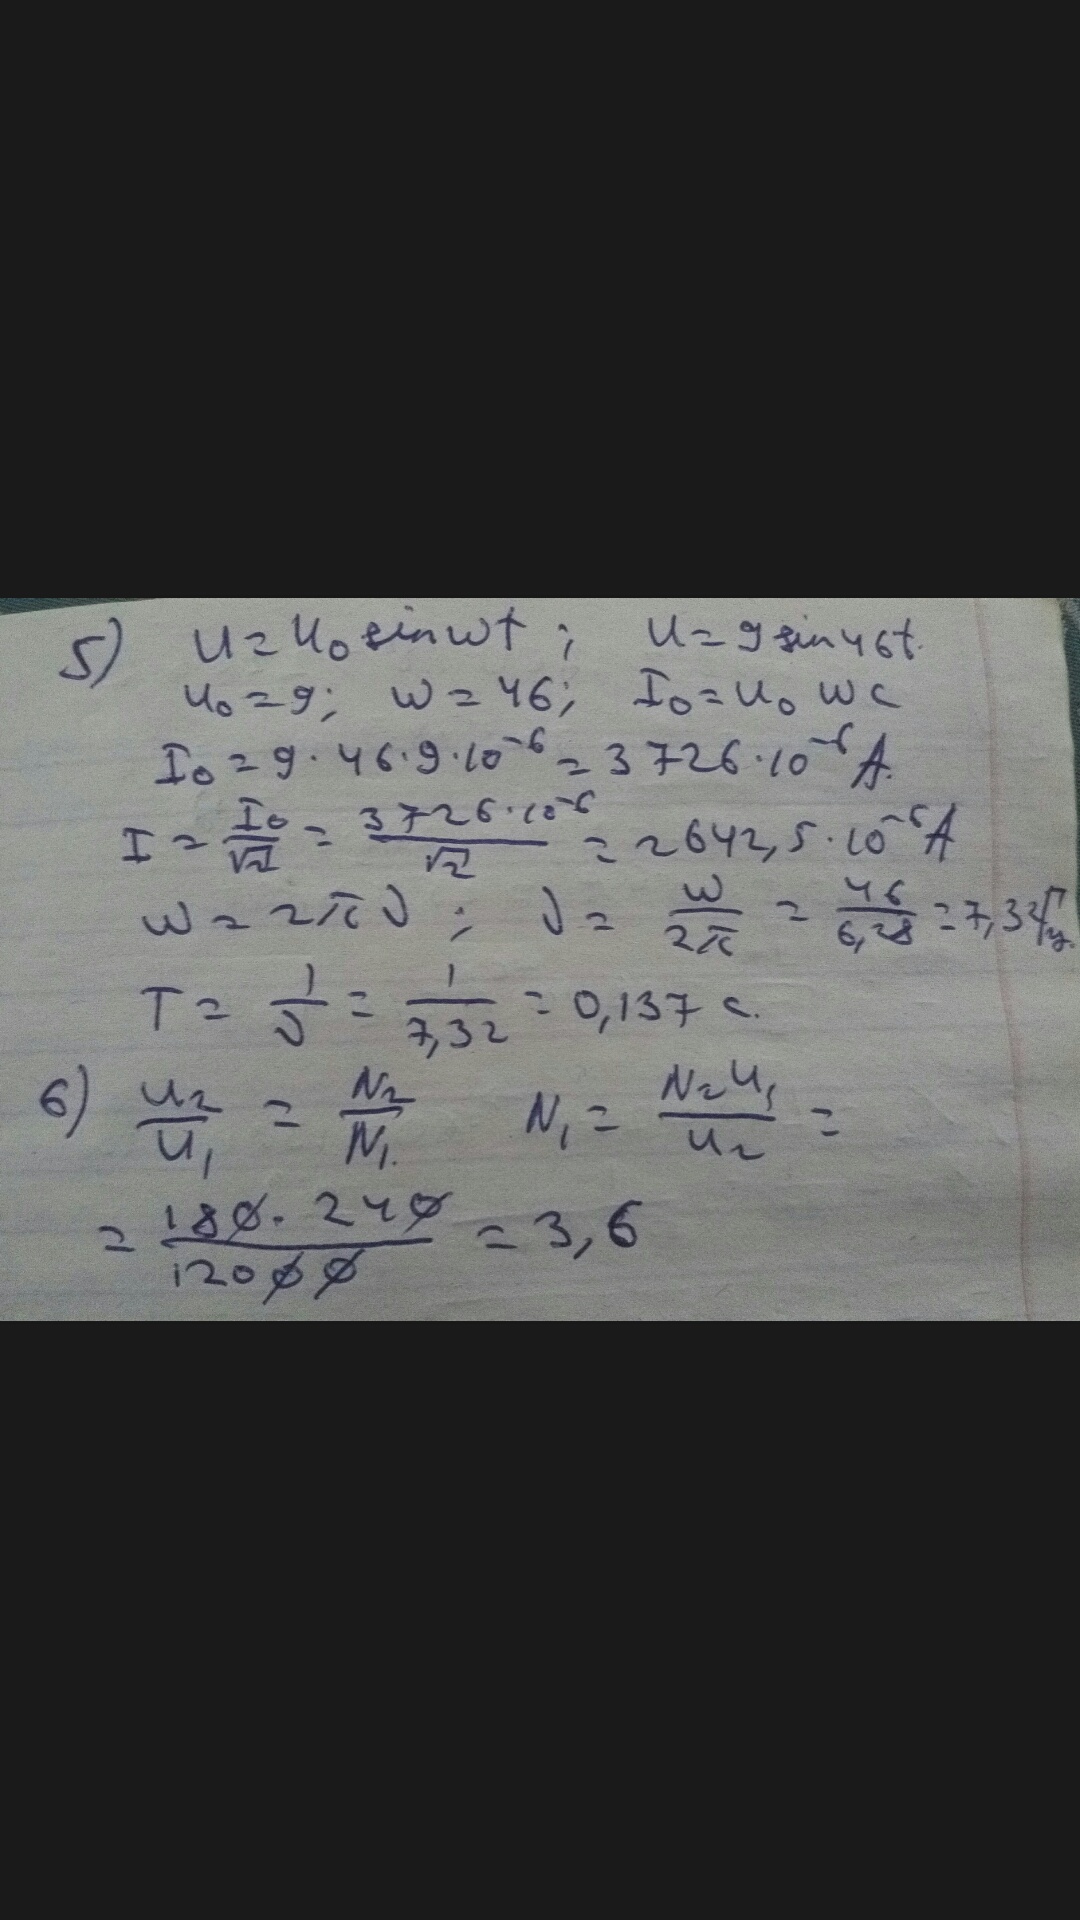 5) U = U₀ sin ωt ; U = 9 sin 46t.
U₀ = 9; ω = 46; I₀ = U₀ ω C
I₀ = 9 · 46 · 9 · 10⁻⁶ = 3726 · 10⁻⁶ A.
I = I₀/√2 = 3726 · 10⁻⁶/√2 = 2642,5 · 10⁻⁶ A
ω = 2π ν ; ν = ω/2π = 46/6,28 = 7,32 Гц.
T = 1/ν = 1/7,32 = 0,137 с.
6) U₂/U₁ = N₂/N₁. N₁ = N₂U₁/U₂ =
= 180 · 240/12000 = 3,6